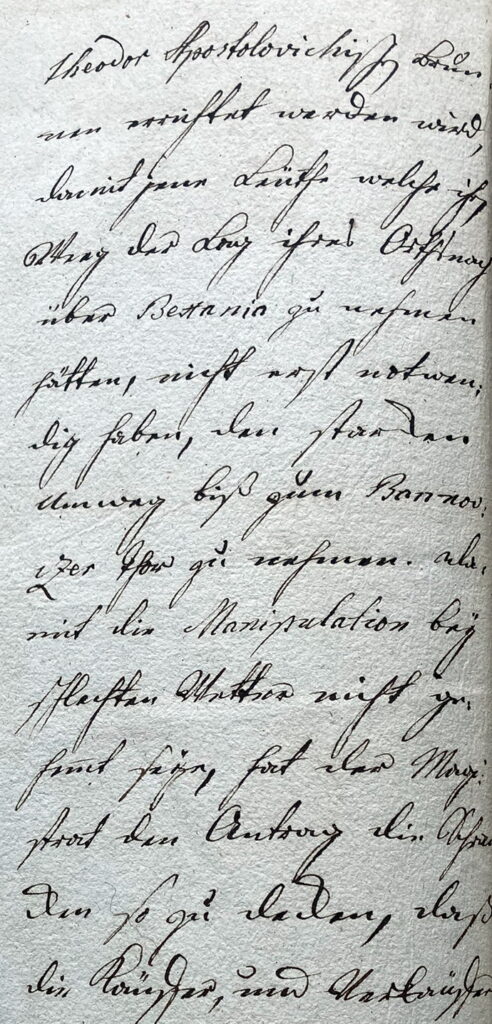 Theodor Apostolovichisch Brun:
nen errichtet werden wird,
damit jene Leüthe welche ihr
Weeg der Lag ihres Orths nach
über Bettania zu nehmen
hätten, nicht erst notwen:
dig haben, den starcken
Umweg biß zum
Thor zu nehmen. da:
mit die Manipulation bey
schlechten Wetter nicht ge:
hemt seÿe, hat der Magi:
strat den Antrag die Schran
den so zu decken, daß
die Käuffer, und Verkäuffer